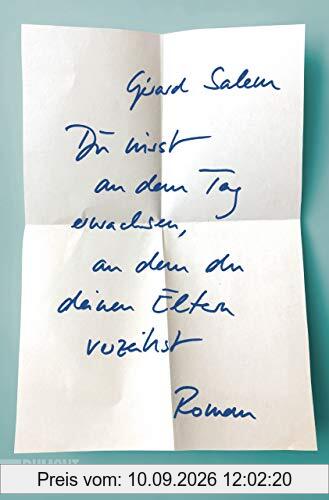 Gérard Salem
Du wirst
an dem Tag
erwachsen,
an dem du
deinen Eltern
verzeihst
Roman
DUMONT
Preis vom: 10.09.2026 12:02:20